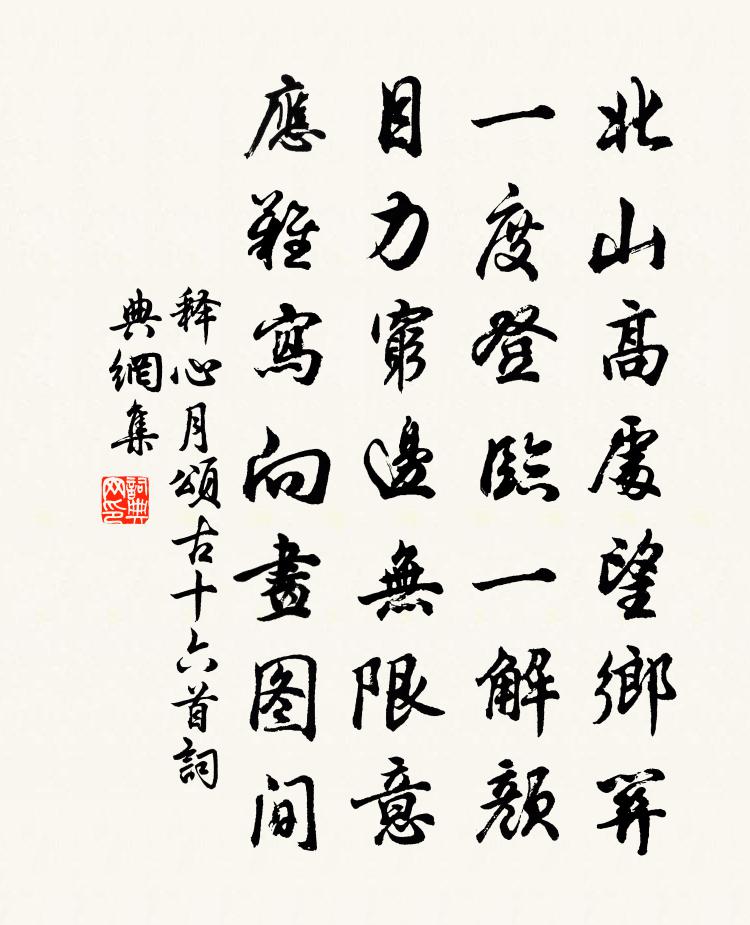 北山高處望鄉關
一度登臨一解顏
目力窮邊無限意
應難寫向畫图间
释心月頌古十六首詞
典網集
詞典
网印